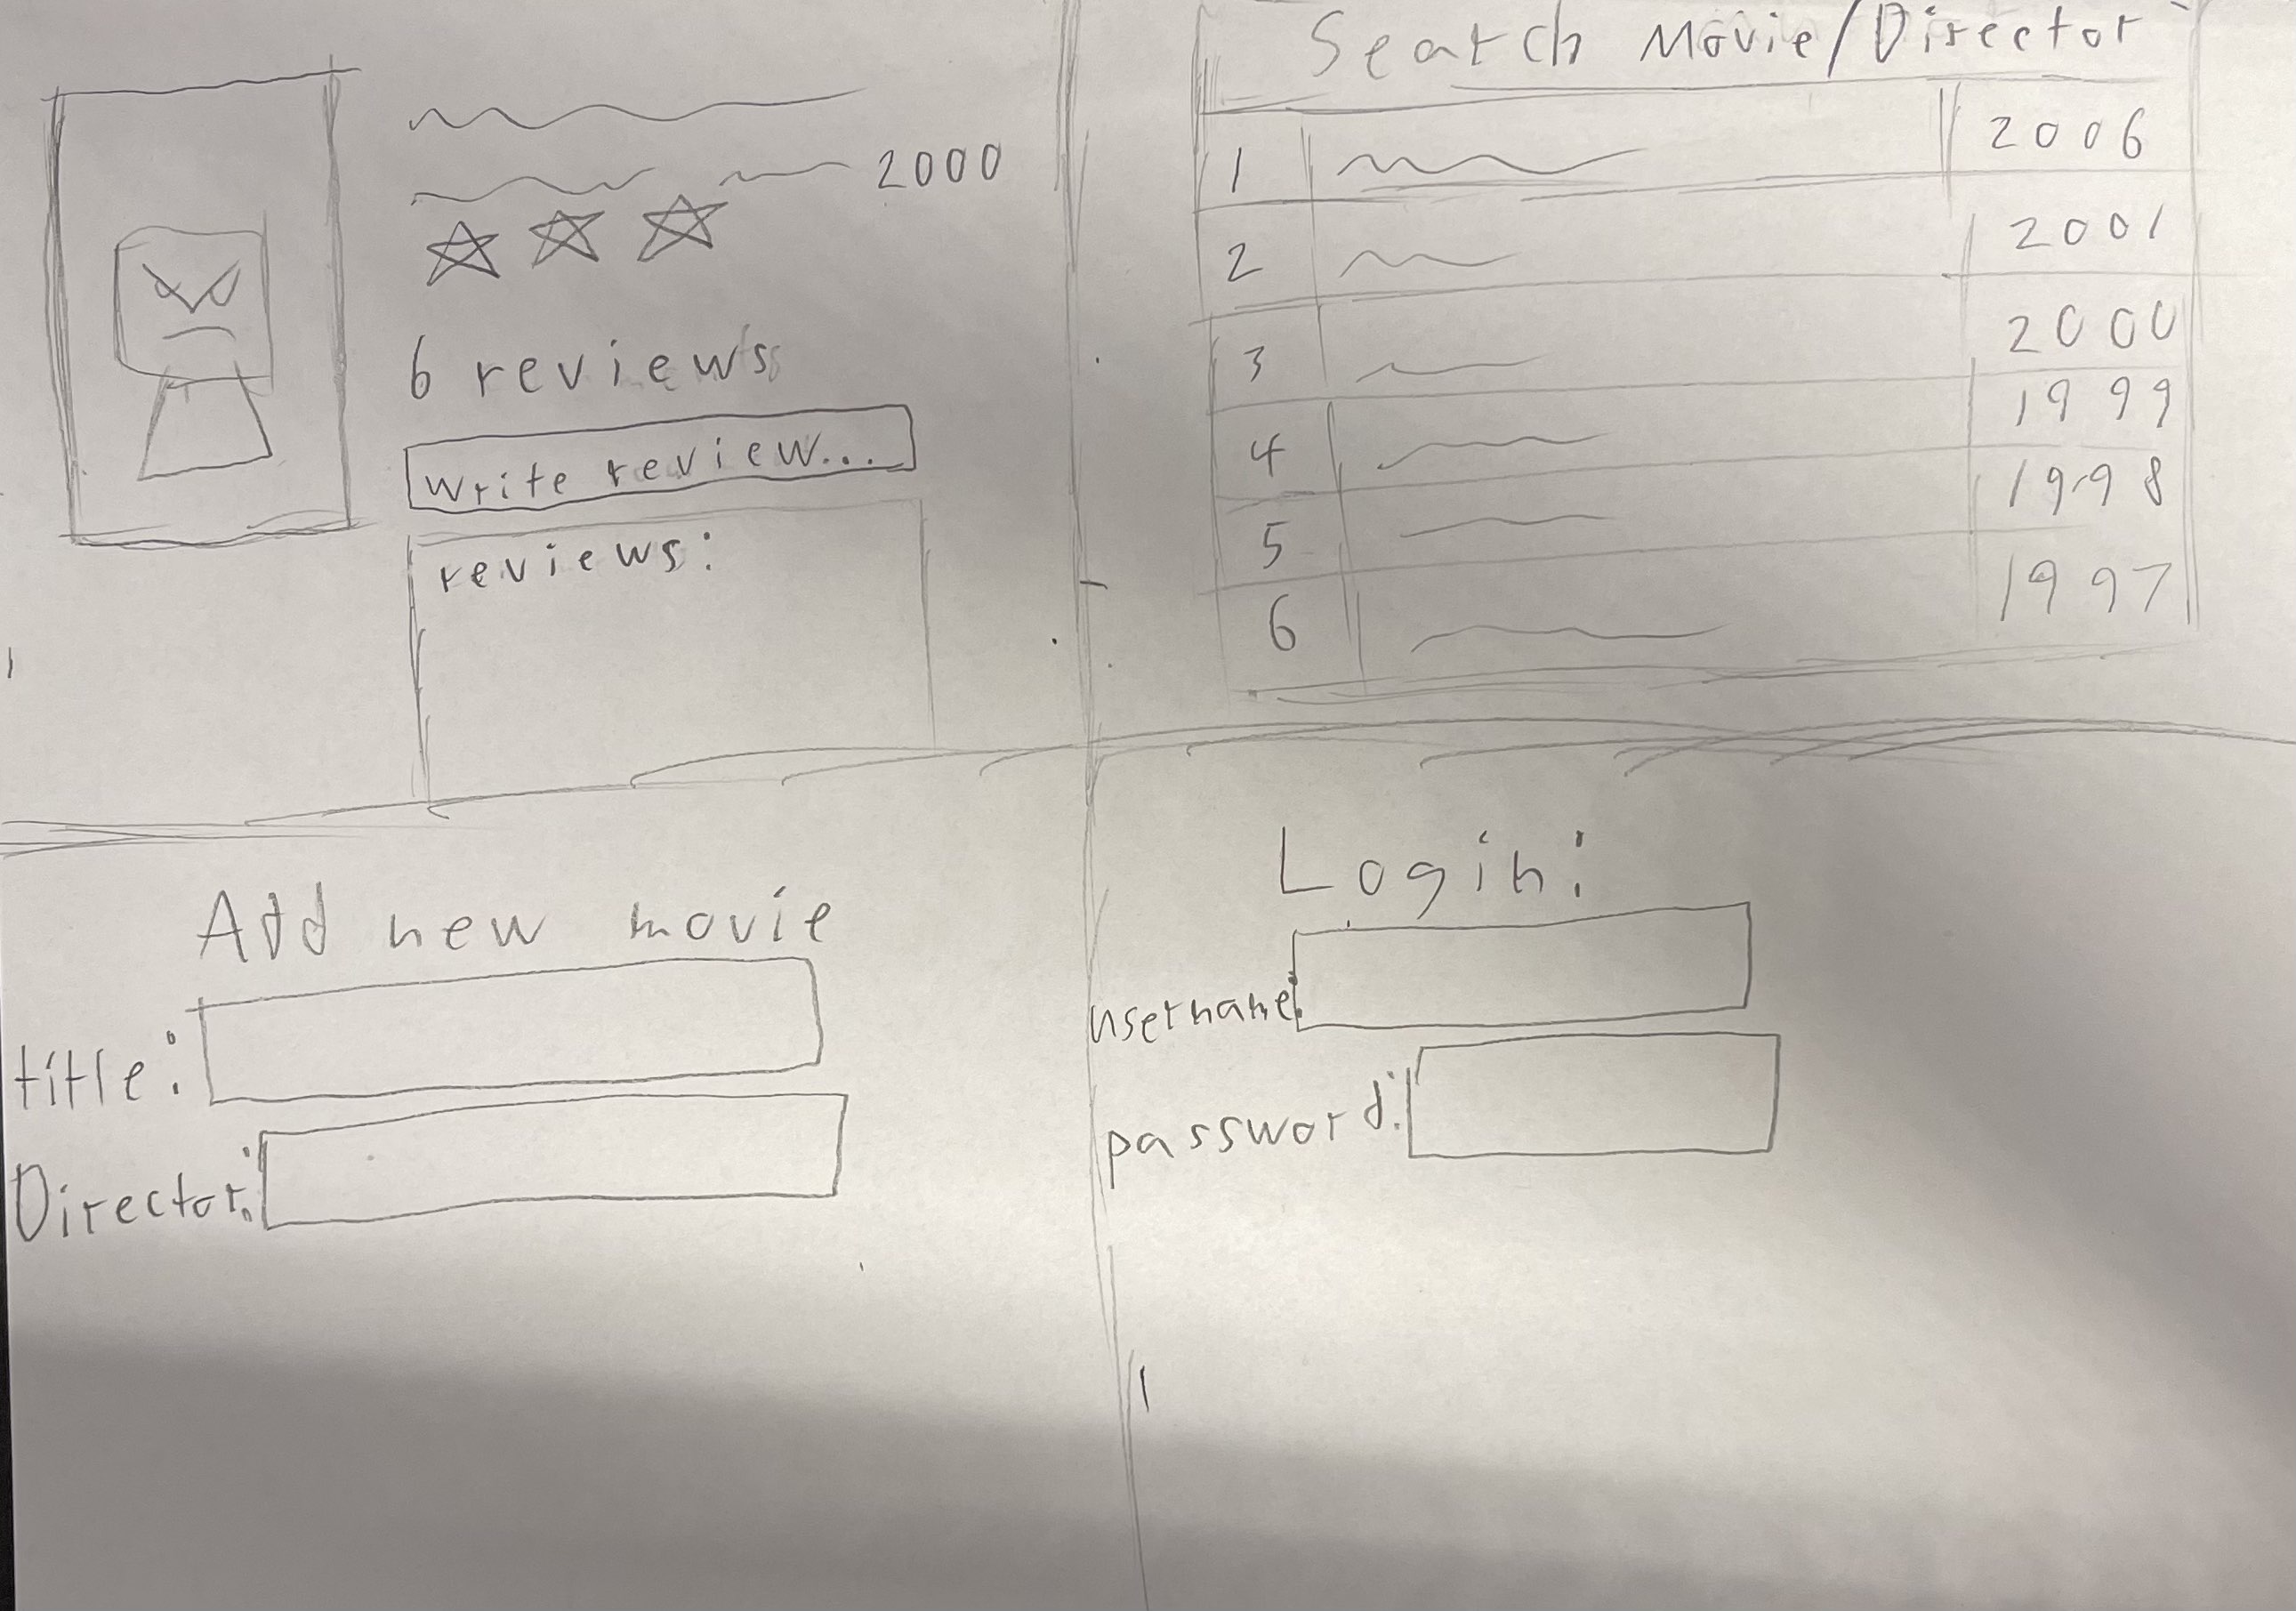 2000
6 reviews
write review...
reviews:
Search Movie/Director
1 2006
2 2001
3 2000
4 1999
5 1998
6 1997
Add new movie
title:
Director:
Login:
username:
password: